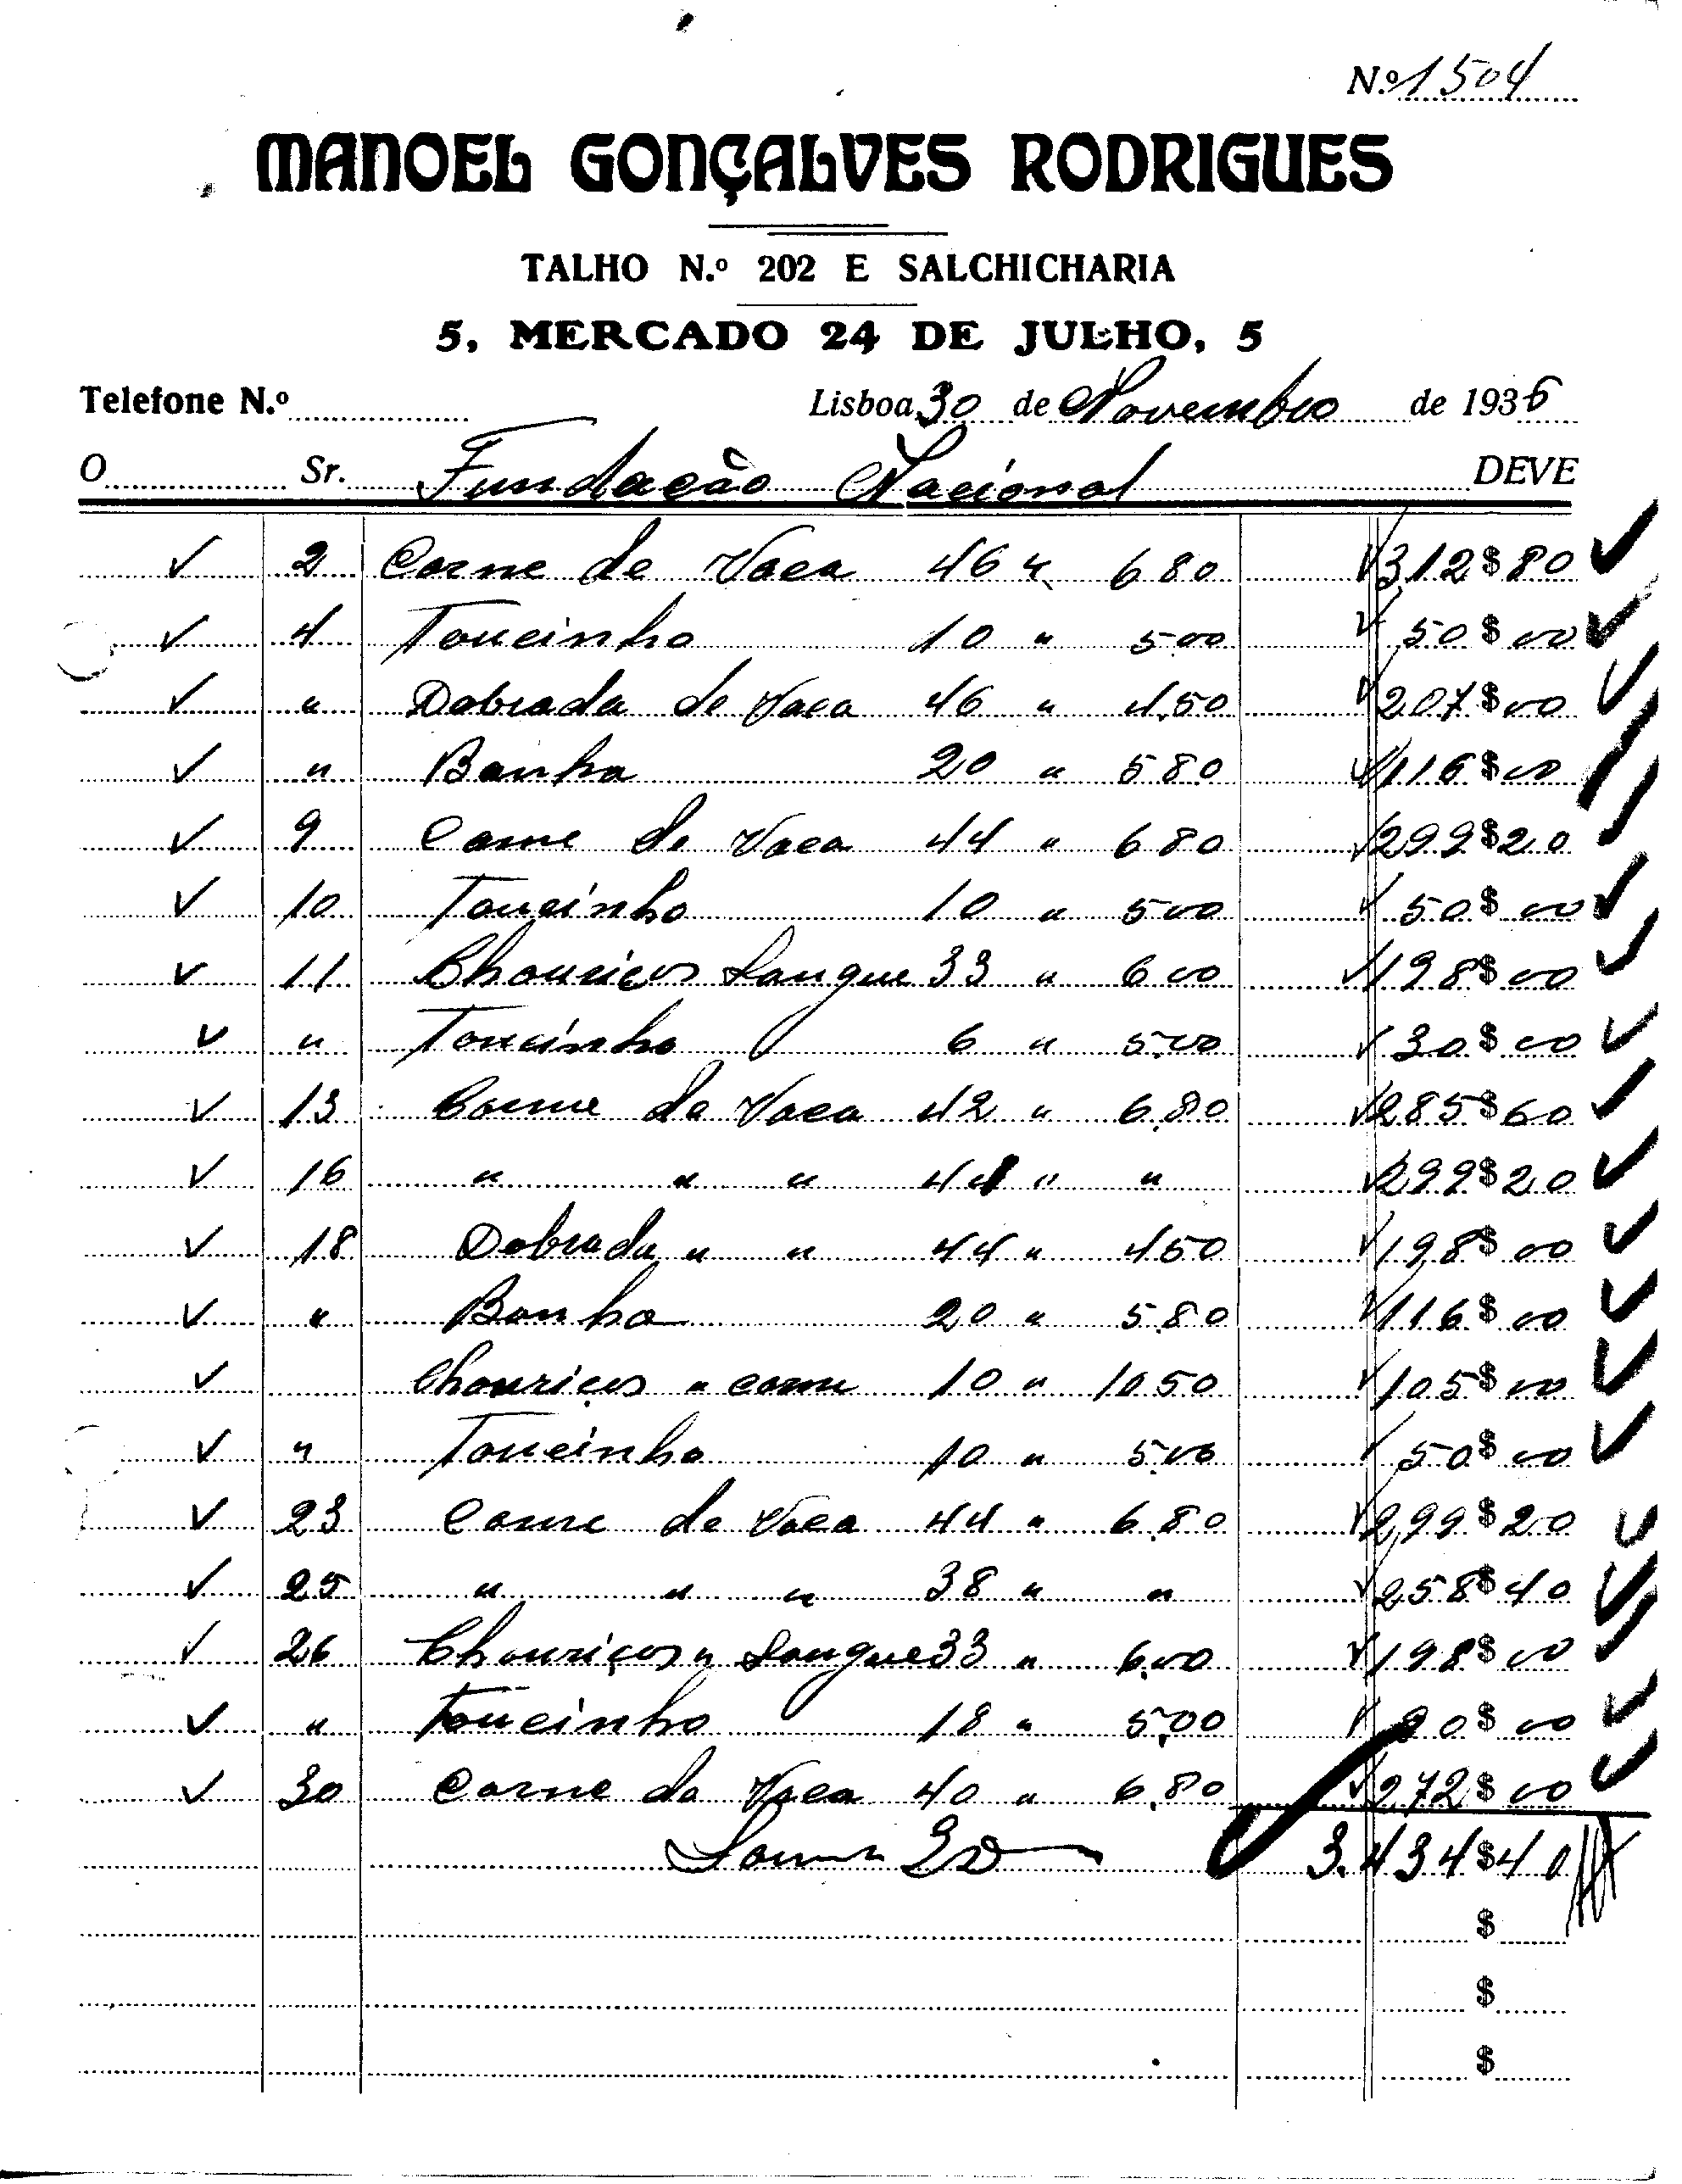 N.º 1504
MANOEL GONÇALVES RODRIGUES
TALHO N.º 202 E SALCHICHARIA
5, MERCADO 24 DE JULHO, 5
Telefone N.º Lisboa, 30 de Novembro de 1936
O Sr. Fundação Nacional DEVE
2 Carne de Vaca 46 " 6 80 312$80
4 Toucinho 10 " 5 00 50$00
" Dobrada de Vaca 46 " 4,50 207$00
" Banha 20 " 5 80 116$00
9 Carne de Vaca 44 " 6 80 299$20
10 Toucinho 10 " 5 00 50$00
11 Chouriços Sangue 33 " 6 00 198$00
" Toucinho 6 " 5,00 30$00
13 Carne de Vaca 42 " 6,80 285$60
16 " " " 44 " " 299$20
18 Dobrada " " 44 " 4 50 198$00
" Banha 20 " 5,80 116$00
Chouriços " carne 10 " 10 50 105$00
" Toucinho 10 " 5,00 50$00
23 Carne de Vaca 44 " 6,80 299$20
25 " " " 38 " " 258$40
26 Chouriços " Sangue 33 " 6,00 198$00
" Toucinho 18 " 5,00 90$00
30 Carne de Vaca 40 " 6,80 272$00
3.434$40
$
$
$